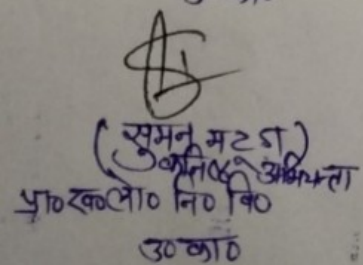 ( सुमन भटड़ा )
कनिष्ठ अभियन्ता
प्रा० ख० लो० नि० वि०
उ० का०